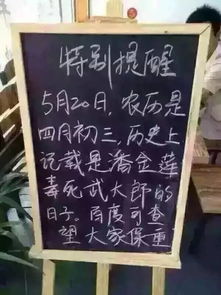 特别提醒
5月20日，农历是
四月初三，历史上
记载是潘金莲
毒死武大郎的
日子。百度可查
望大家保重